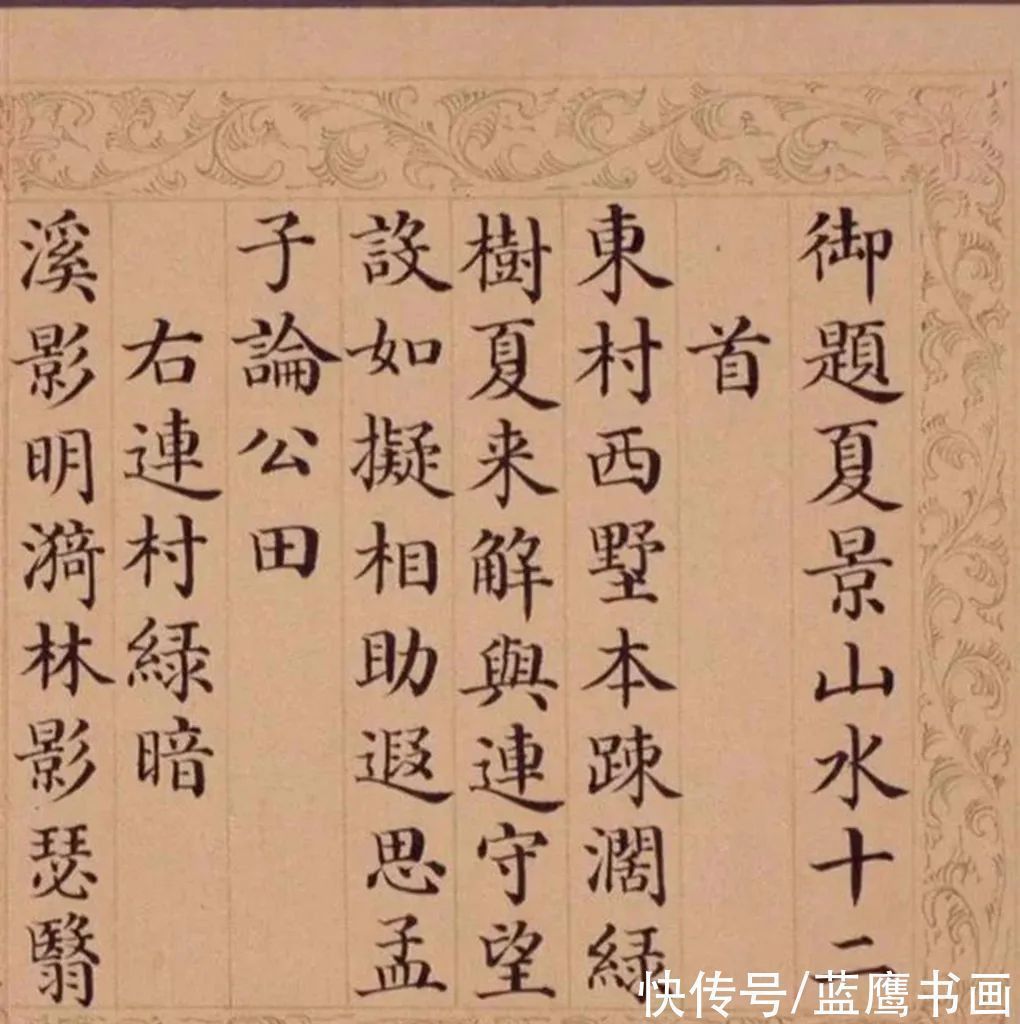 御題夏景山水十二
首
東村西墅本踈濶緑
樹夏来解與連守望
設如擬相助遐思孟
子論公田
右連村緑暗
溪影明漪林影瑟翳
快传号/蓝鹰书画